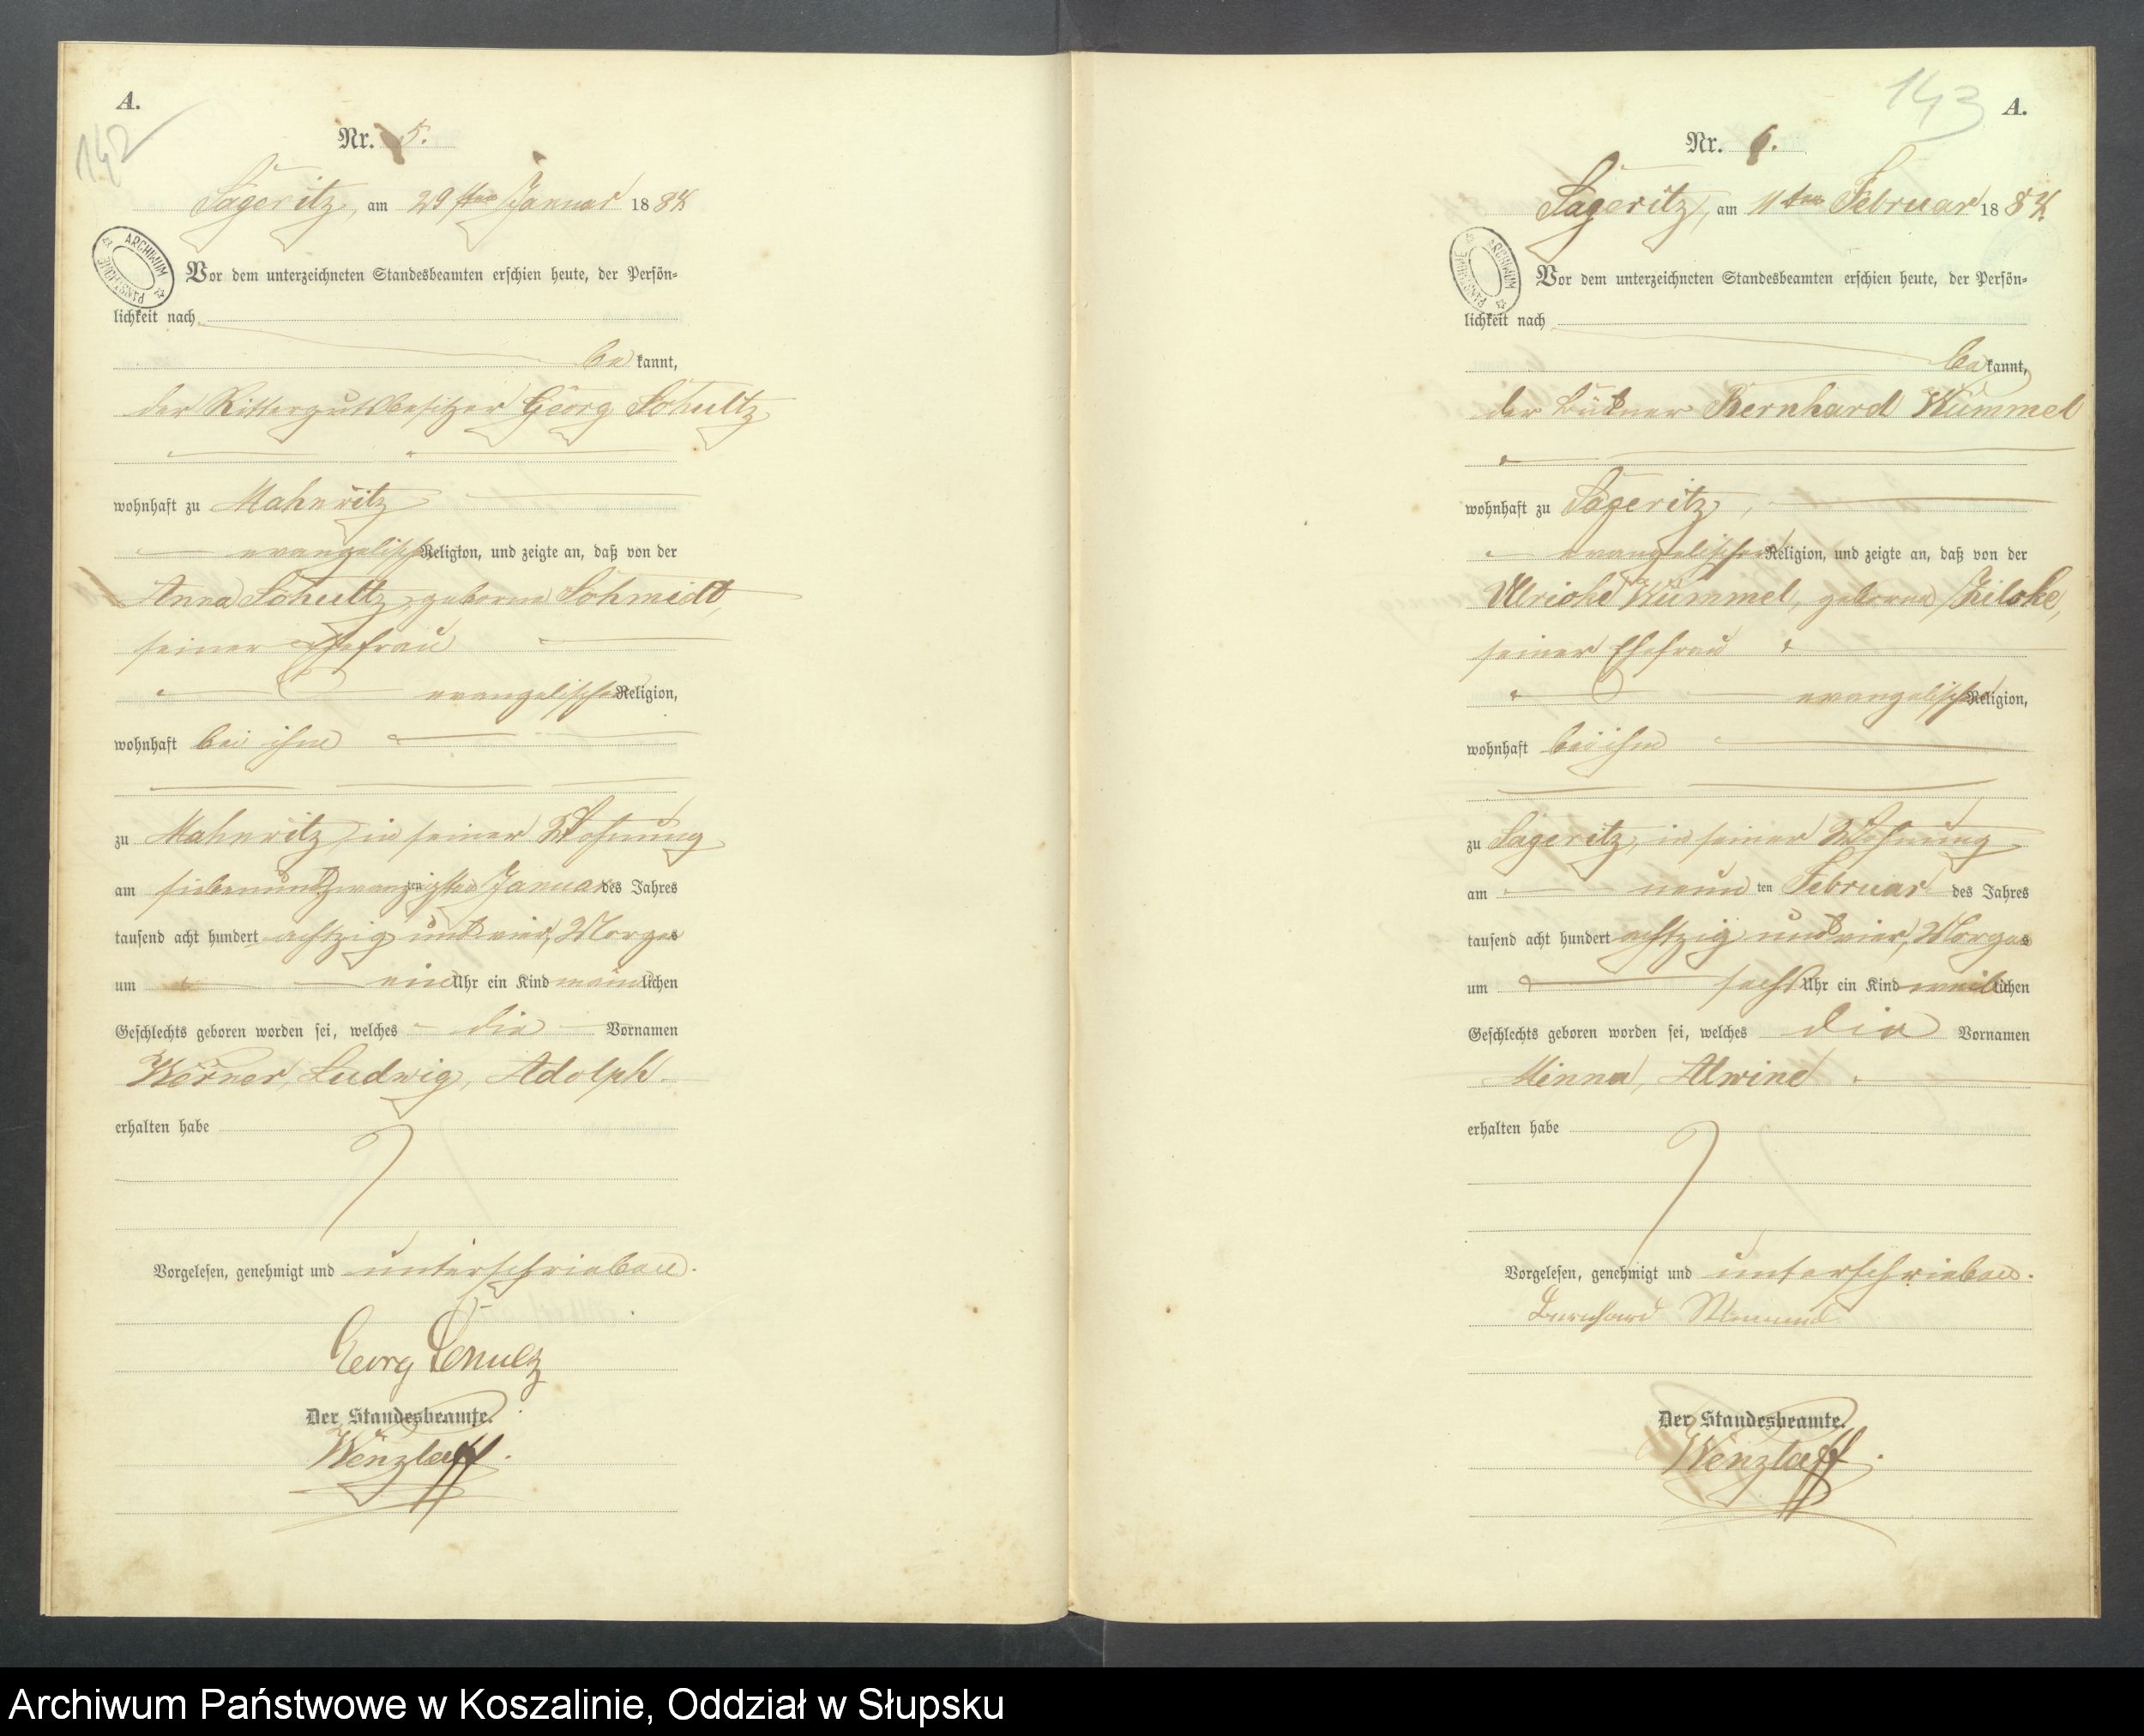 A.
142
Nr. 5.
Sageritz, am 29ten Januar 1884
ARCHIWUM PAŃSTWOWE
Vor dem unterzeichneten Standesbeamten erschien heute, der Persön-
lichkeit nach
bekannt,
der Rittergutsbesitzer Georg Schultz
wohnhaft zu Mahnwitz
evangelischer Religion, und zeigte an, daß von der
Anna Schultz, geborne Schmidt,
seiner Ehefrau
evangelischer Religion,
wohnhaft bei ihm
zu Mahnwitz, in seiner Wohnung
am siebenundzwanzigsten Januar des Jahres
tausend acht hundert achtzig und vier, Morgens
um ein Uhr ein Kind männlichen
Geschlechts geboren worden sei, welches die Vornamen
Werner, Ludwig, Adolph
erhalten habe
Vorgelesen, genehmigt und unterschrieben.
Georg Schultz
Der Standesbeamte.
Wenzlaff.
143
A.
Nr. 6.
Sageritz, am 11ten Februar 1884
ARCHIWUM PAŃSTWOWE
Vor dem unterzeichneten Standesbeamten erschien heute, der Persön-
lichkeit nach
bekannt,
der Büdner Bernhard Kummel
wohnhaft zu Sageritz,
evangelischer Religion, und zeigte an, daß von der
Ulricke Kummel, geborne Zilcke,
seiner Ehefrau
evangelischer Religion,
wohnhaft bei ihm
zu Sageritz, in seiner Wohnung
am neunten Februar des Jahres
tausend acht hundert achtzig und vier, Morgens
um sechs Uhr ein Kind weiblichen
Geschlechts geboren worden sei, welches die Vornamen
Minna, Alwine
erhalten habe
Vorgelesen, genehmigt und unterschrieben.
Bernhard
Der Standesbeamte.
Wenzlaff.
Archiwum Państwowe w Koszalinie, Oddział w Słupsku